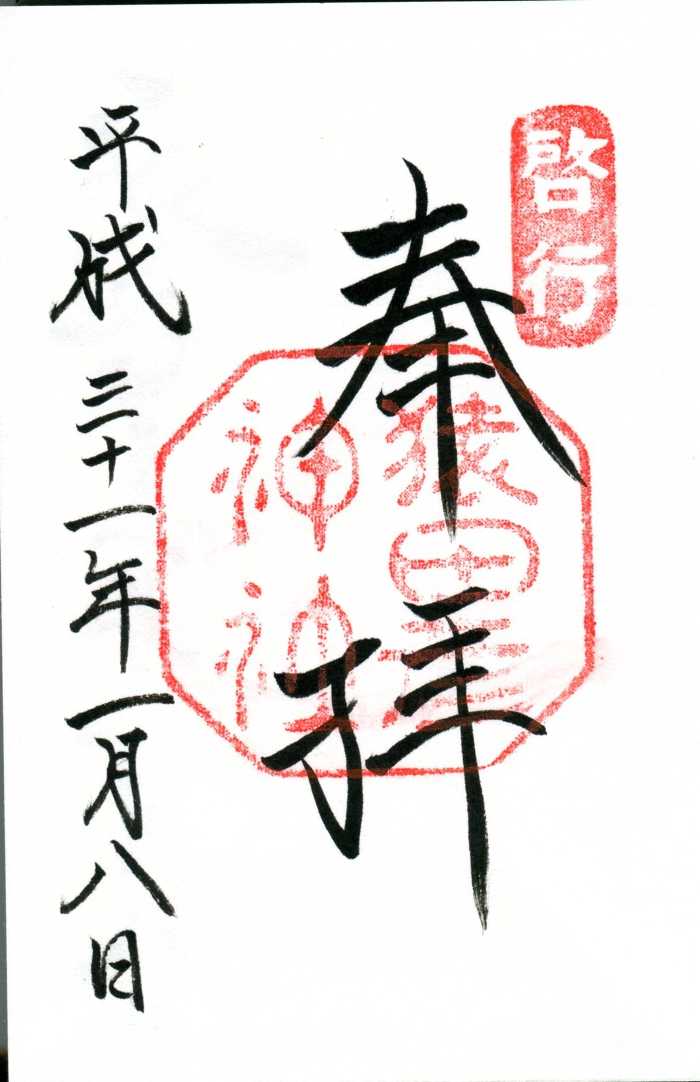 啓行
奉拝
猿田
神
平成三十一年一月八日